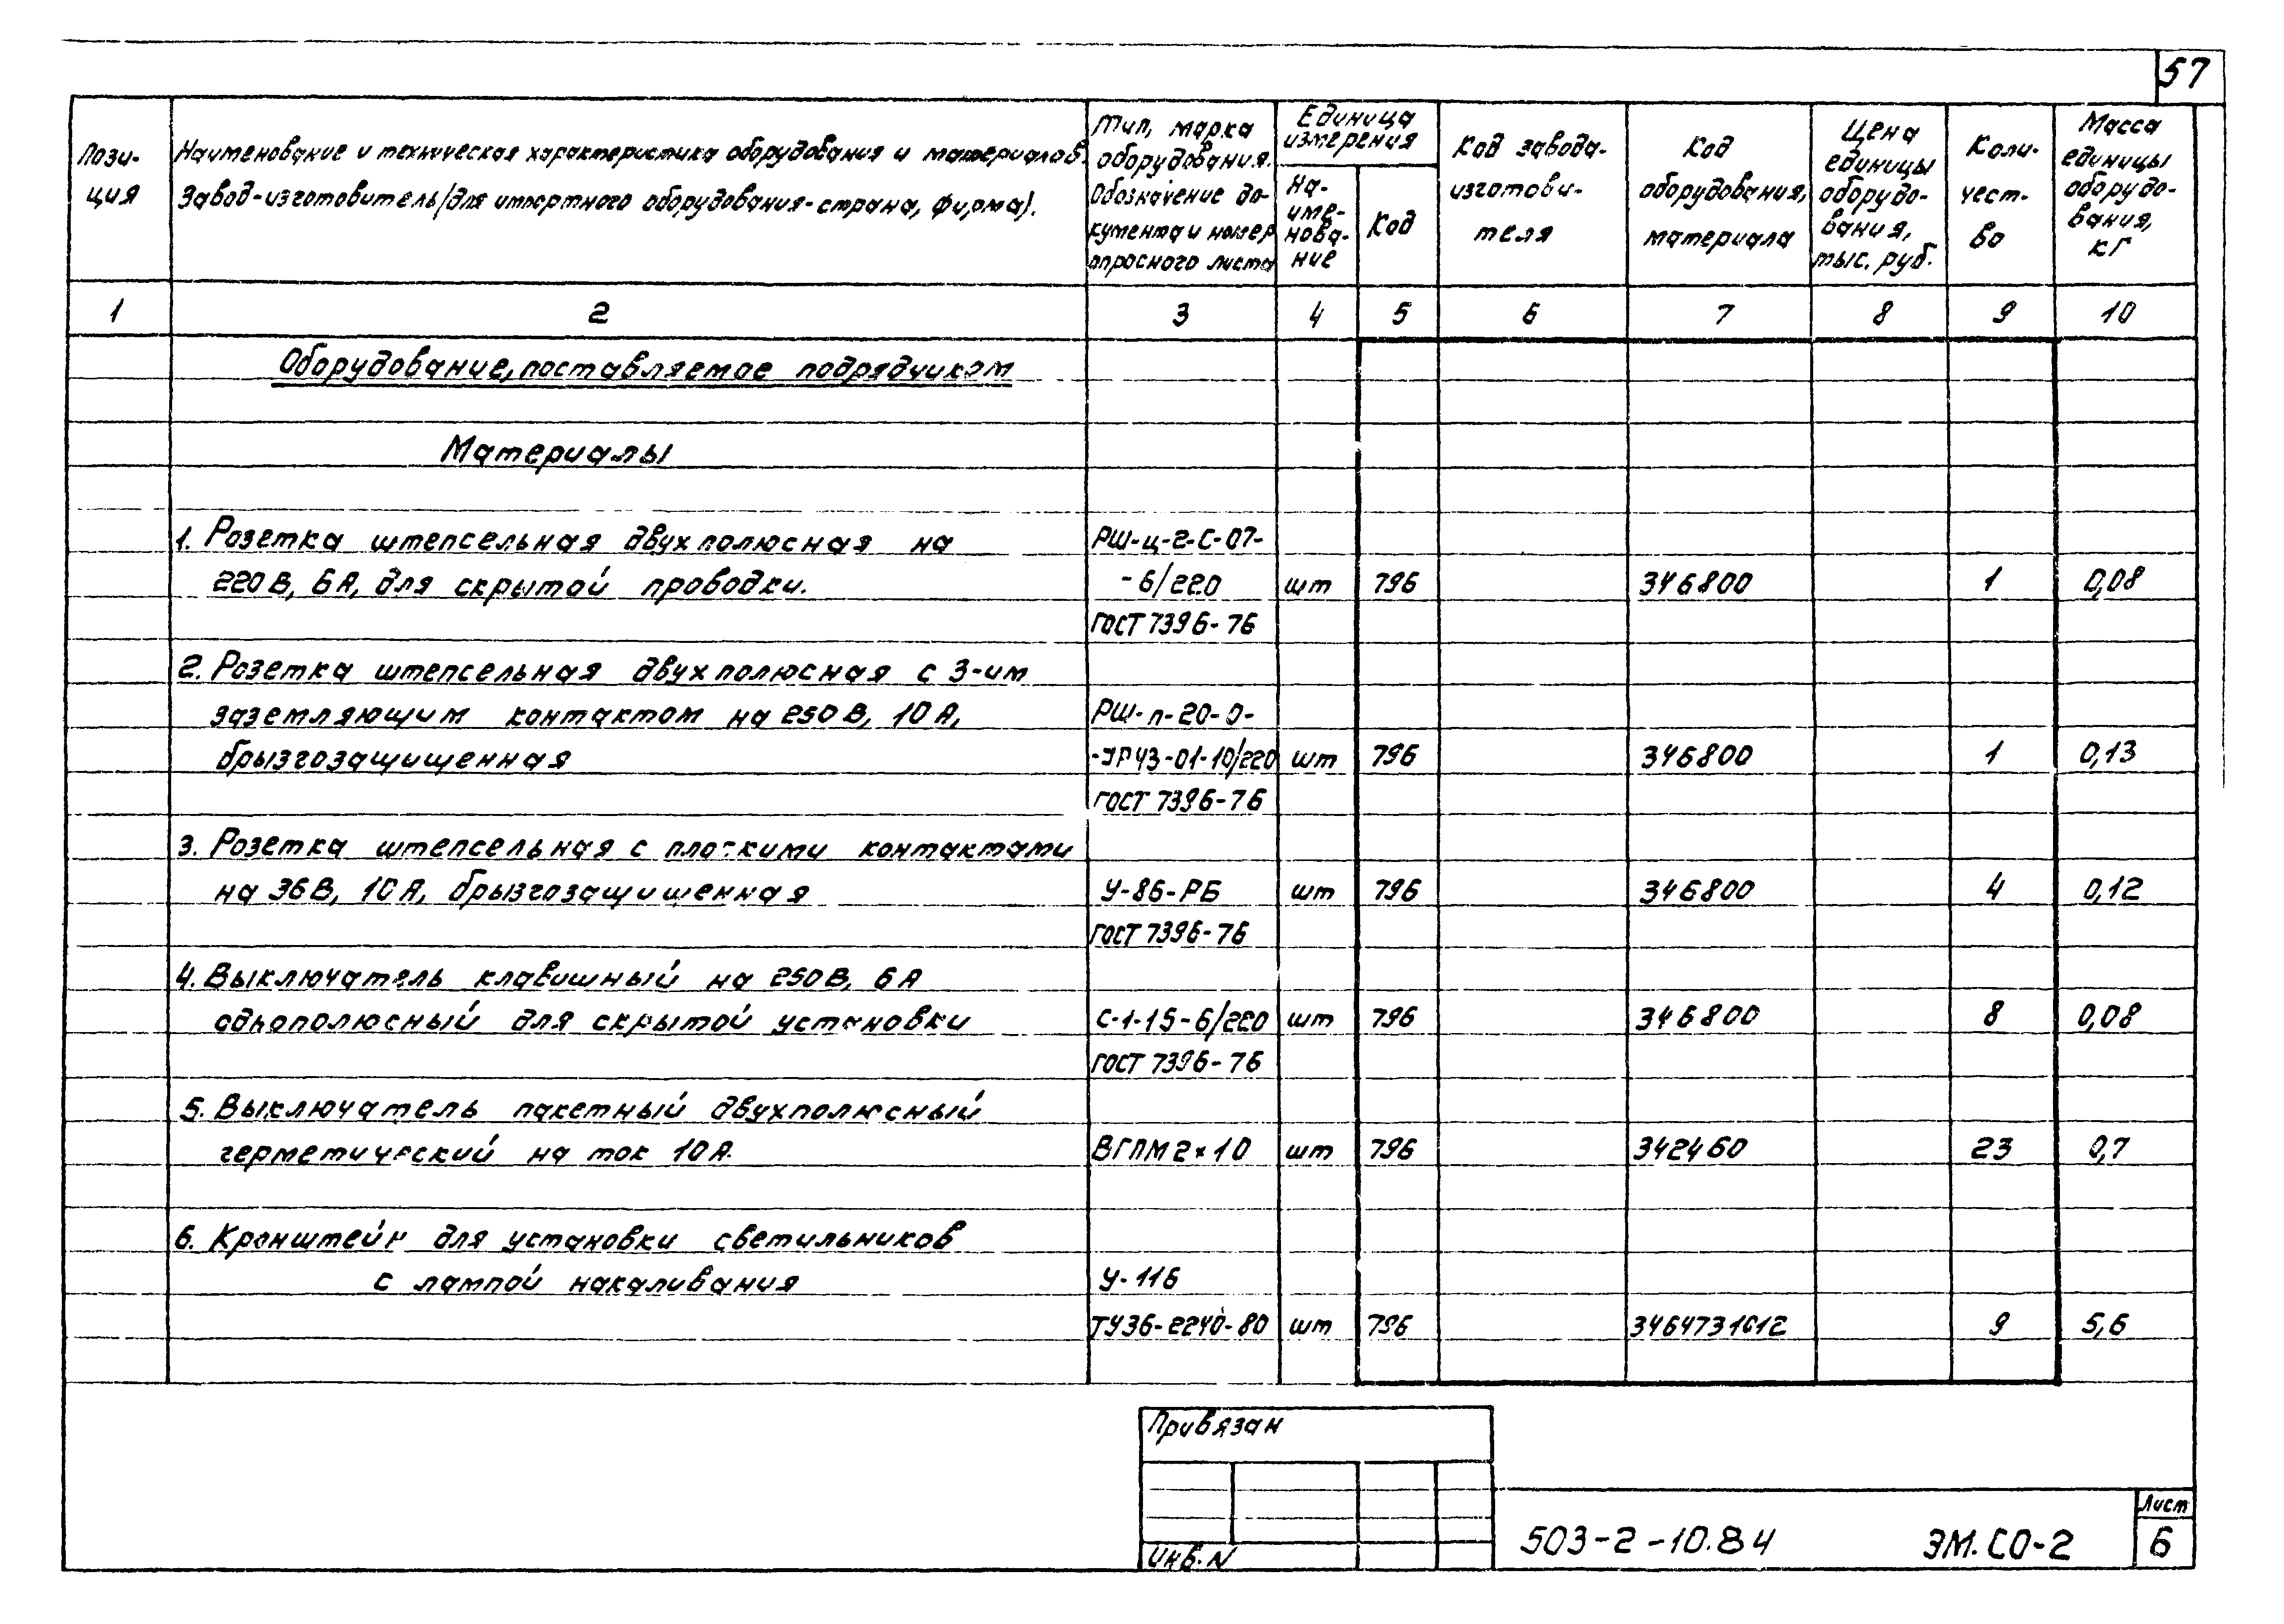 57
Пози-
ция
Наименование и техническая характеристика оборудования и материалов.
Завод-изготовитель/для импортного оборудования-страна, фирма).
Тип, марка
оборудования.
Обозначение до-
кумента и номер
опросного листа
Единица
измерения
На-
име-
нова-
ние
Код
Код завода-
изготови-
теля
Код
оборудования,
материала
Цена
единицы
оборудо-
вания,
тыс. руб.
Коли-
чест-
во
Масса
единицы
оборудо-
вания,
кг
1 2 3 4 5 6 7 8 9 10
Оборудование, поставляемое подрядчиком
Материалы
1. Розетка штепсельная двухполюсная на РШ-ц-2-С-07-
220В, 6А, для скрытой проводки. -6/220 шт 796 346800 1 0,08
ГОСТ 7396-76
2. Розетка штепсельная двухполюсная с 3-им
заземляющим контактом на 250В, 10А, РШ-п-20-0-
брызгозащищенная -01-10/220 шт 796 346800 1 0,13
ГОСТ 7396-76
3. Розетка штепсельная с плоскими контактами
на 36В, 10А, брызгозащищенная У-86-РБ шт 796 346800 4 0,12
ГОСТ 7396-76
4. Выключатель клавишный на 250В, 6А
однополюсный для скрытой установки С-1-15-6/220 шт 796 346800 8 0,08
ГОСТ 7396-76
5. Выключатель пакетный двухполюсный
герметический на ток 10А. ВГПМ2×10 шт 796 342460 23 0,7
6. Кронштейн для установки светильников
с лампой накаливания У-116
ТУ36-2240-80 шт 796 3464731012 9 5,6
Привязан
Инв. N
503-2-10.84 ЭМ.СО-2
Лист
6